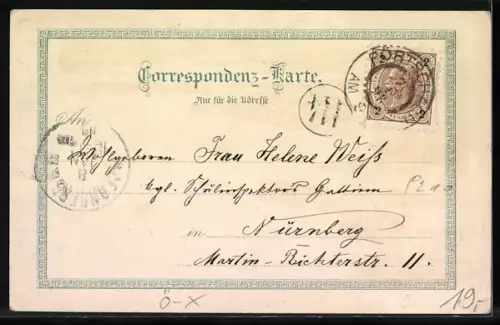 Correspondenz-Karte.
Nur für die Adresse
An
Wohlgeboren Frau Helene Weiss
kgl. Schulinspektors Gattin
in Nürnberg
Martin-Richterstr. 11.
Ö-X
19,-